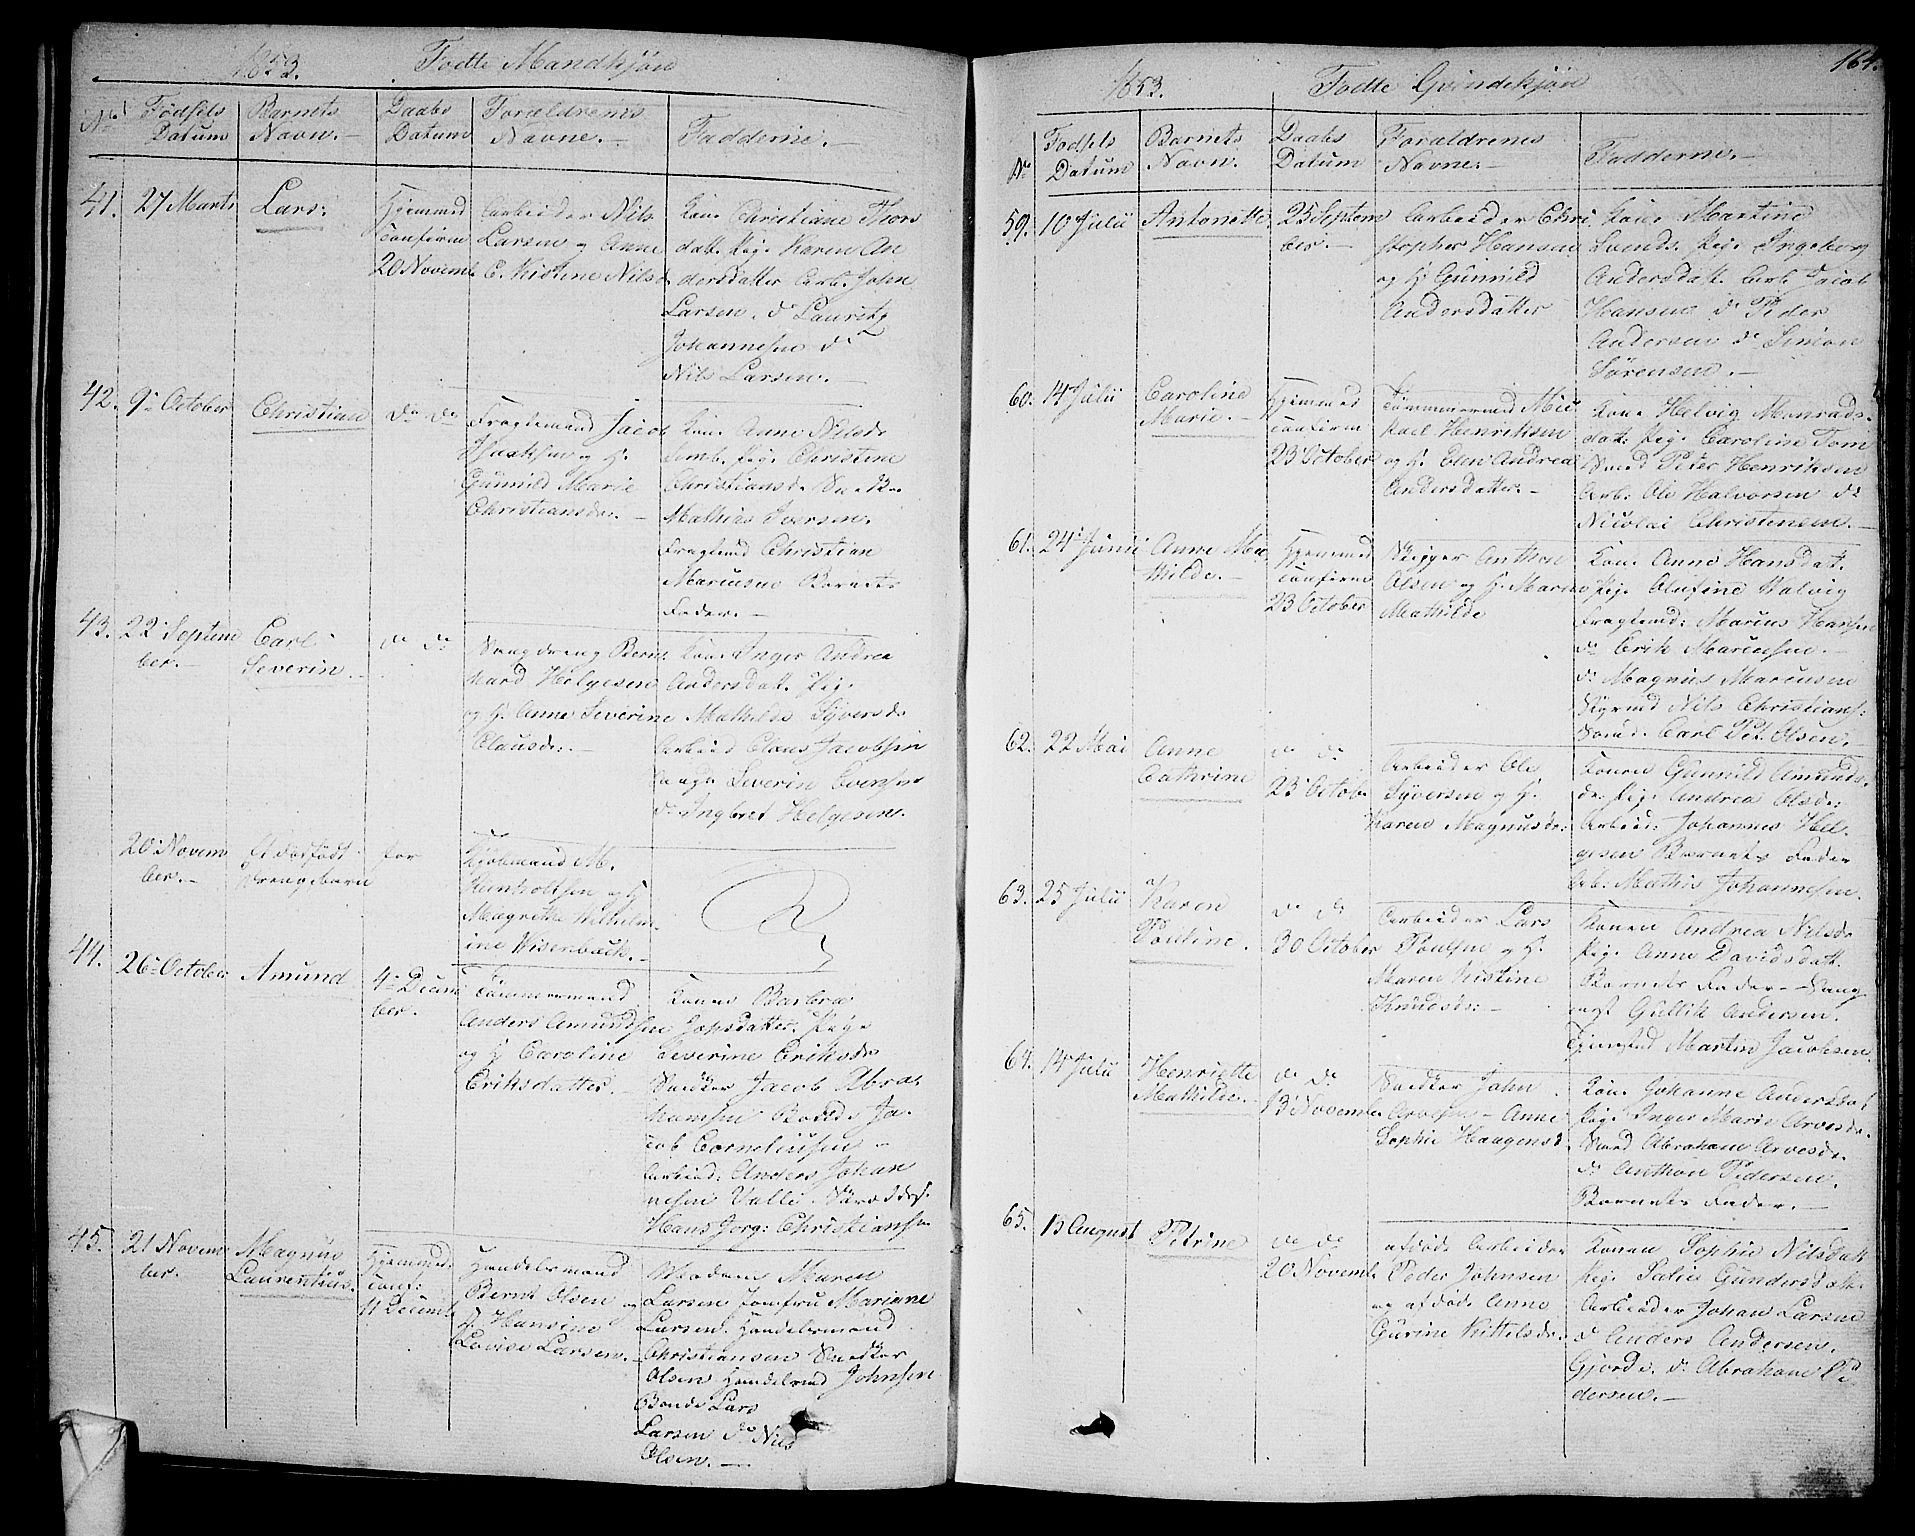 1853. Fødte Mandkjøn
No Fødsels Datum Barnets Navn. Daabs Datum Forældrenes Navne. Fadderne.
41. 27 Marts Lars: Hjemmed
confirm
20 Novemb
Arbeider Nils
Larsen og Anne
C. Kistine Nilsd.
Kone Christiane Thors
datt. Pig: Karen An
dersdatter Arb. John
Larsen. do Lauritz
Johannesen do
Nils Larsen.
42. 9 October Christian do do
Fragtemand Jacob
Isaksen og H.
Gunnild Marie
Christiansdr.
Kone Anne Nilsdr
Pig: Christine
Christiansdr Snedk.
Mathias Iversen.
Fragtemd Christian
Marcussen Barnets
Fader.
43. 22 Septem
ber.
Carl
Severin.
do do
Bern
hard Helgesen
og H. Anne Severine
Clausdr:
Kone Inger Andrea
Andersdatt. Pig:
Mathilde Syversdr
Arbeid Claus Jacobsen
Severin Evensen
do Ingbret Helgesen.
20 Novem
ber.
Et dødfødt
Drengebarn
for
Kjøbmand M.
Reinholtsen og H
Magrethe Wilhelm
ine Wisenbach.
44. 26 October Amund 4 Decem
ber.
Tømmermand
Anders Amundsen
og H Caroline
Eriksdatter.
Konen Barbra
Jopsdatter. Pige
Severine Eriksdr
Snedker Jacob Abra
hamsen Ja
cob Corneliussen
Arbeid: Anders Johan
nesen Valle. Skrædder
Hans Jørg: Christiansen
45. 21 Novem
ber.
Magnus
Laurentius.
Hjemmed.
conf:
11 Decemb
Handelsmand
Bernt Olsen og
H. Hansine
Lovise Larsen.
Madam Maren
Larsen Jomfru Mariane
Larsen. Handelsmand
Christiansen Snedker
Olsen Handelsmd Johnsen
Bonde Lars
Larsen do Nils
Olsen.
164.
1853. Fødte Qvindekjøn
No Fødsels Datum Barnets Navn. Daabs Datum Forældrenes Navne. Fadderne.
59. 10 Julii Antonette 25 Septem
ber.
Arbeider Chri
stopher Hansen
og H. Gunnild
Andersdatter
Kone Martine
Svends. Pig: Ingeborg
Andersdatt. Arb. Jacob
Hansen do Peder
Andersen do Simon
Sørensen.
60. 14 Julii Caroline
Marie.
Hjemmed
confirm
23 October
Tømmermd Mic
kael Henriksen
og H. Elen Andrea
Andersdatter.
Kone Helvig Monrads
dat: Pig: Caroline Tom
Smed Peter Henriksen
Arb: Ole Halvorsen do
Nicolai Christensen.
61. 24 Junii Anne Ma
thilde.
Hjemmed
confirm
23 October
Skipper Anthon
Olsen og H. Maren
Mathilde
Kone Anne Hansdat.
Pig: Olufine Valvig
Fragtemd: Marius Hansen
do Erik Marcussen.
do Magnus Marcussen
Nils Christians:
Smed. Carl Pet. Olsen.
62. 22 Mai Anne
Cathrine
do do
23 Octobe
Arbeider Ole
Syversen og H.
Karen Magnusdr:
Konen Gunnild Amunds
dr: Pig: Andrea Olsdr:
Arbeid: Johannes Hel
gesen Barnets Fader
Arb. Mathis Johannesen.
63. 25 Julii Karen
Pouline.
do do
30 October
Arbeider Lars
Poulsen og H.
Maren Kistine
Knudsdr:
Konen Andrea Nilsdr
Pig: Anne Davidsdatt.
Barnets Fader
Gullik Andersen.
Martin Jacobsen
64. 14 Julii Henriette
Mathilde.
do do
13 Novemb
Snedker John
Arvesen Anne
Sophie Haagensd.
Kone Johanne Andersdat
Pig: Inger Marie Arvesdr.
Smed Abraham Arvesdr.
do Anthon Pedersen.
Barnets Fader.
65. 13 August Petrine do do
20 Novemb.
afdøde Arbeider
Peder Johnsen
og afdøde Anne
Gurine Kittelsdr.
Konen Sophie Nilsdatt
Pig: Gundersdatt.
Arbeider Johan Larsen
do Anders Andersen,
Gjerde. do Abraham Pe
dersen.